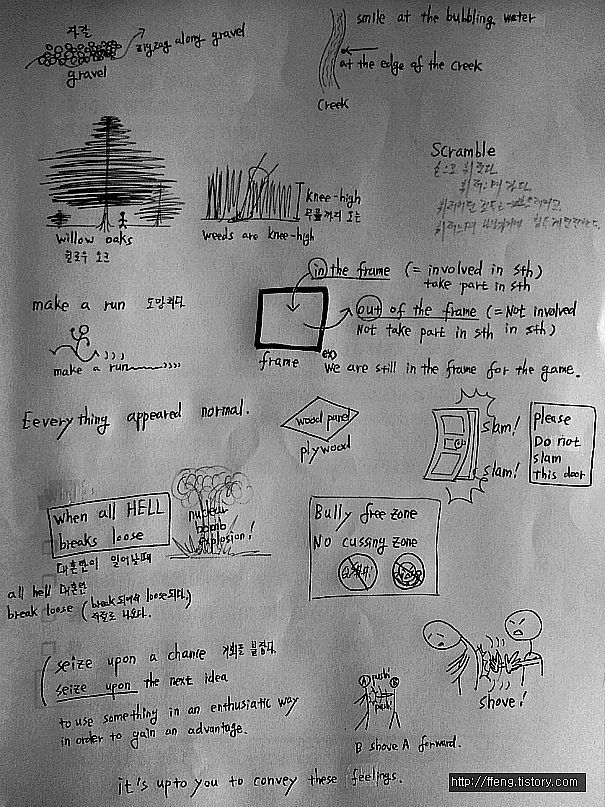 자갈
zigzag along gravel
gravel
smile at the bubbling water
at the edge of the creek
Creek
willow oaks
윌로우 오크
Knee-high
무릎까지 오는
weeds are knee-high
Scramble
손으로 휘젓다
in the frame (= involved in sth)
take part in sth
out of the frame (= Not involved
Not take part in sth in sth)
frame
ex)
We are still in the frame for the game.
make a run 도망치다
make a run
Eeverything appeared normal.
wood panel
plywood
Slam!
Slam!
please
Do not
slam
This door
when all HELL
breaks loose
대혼란이 일어날때
nuclear
bomb
explosion!
all hell 대혼란
break loose (break되어서 loose되다.)
Bully free zone
No cussing zone
seize upon a chance 기회를 붙잡다.
seize upon the next idea
to use something in an enthusiatic way
in order to gain an advantage.
A
B
push
push
B shove A forward.
shove!
it's upto you to convey these feelings.
http://ffeng.tistory.com